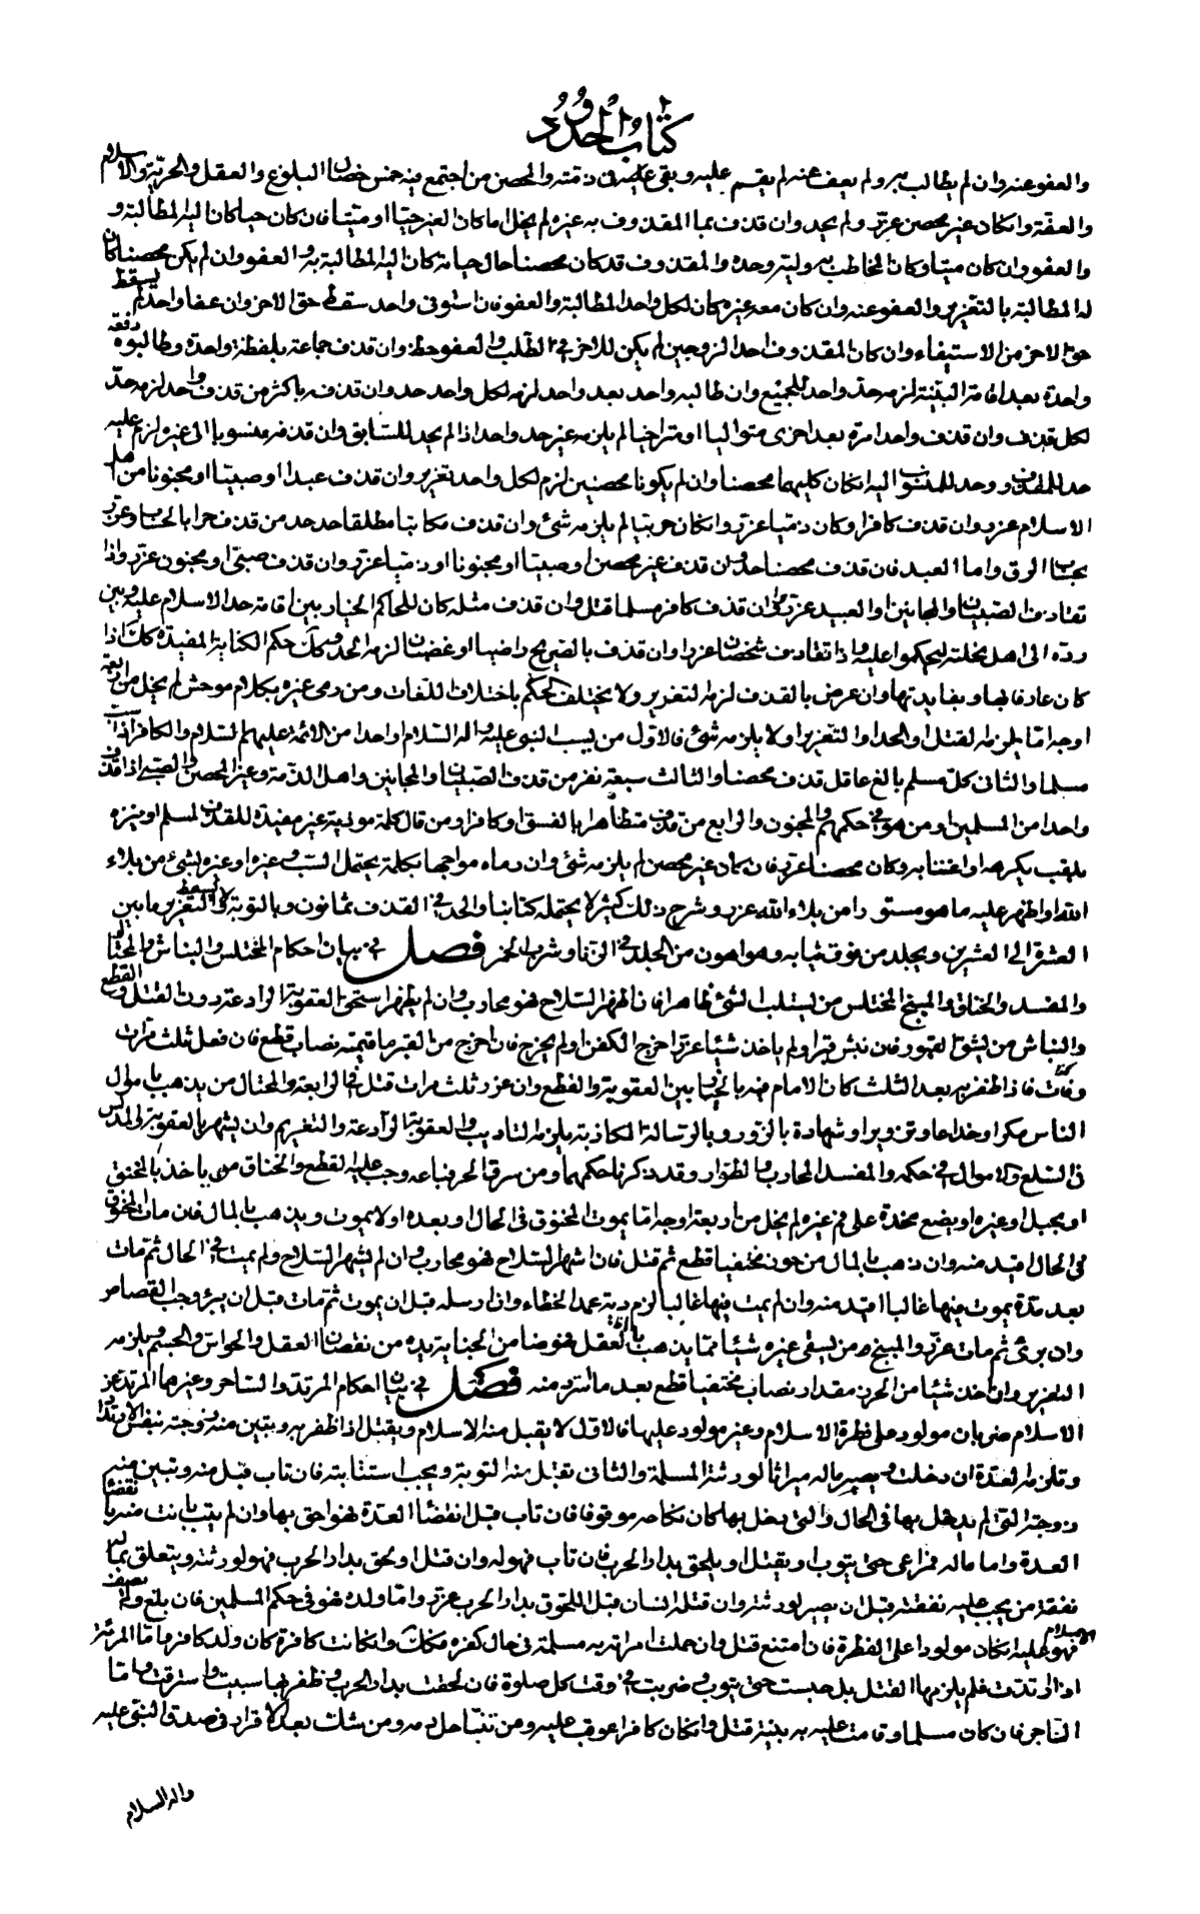 كتاب الحدود
والعفو عنه وان لم يطالب به ولم يعف عنه لم يقم عليه وبقى عليه فى ذمته والمحصن من اجتمع فيه خمس خصال البلوغ والعقل والحرية والاسلام
والعفة وان كان غير محصن عزر ولم يحد وان قذف بما المقذوف به غيره لم يخل اما كان الغير حيا او ميتا فان كان حيا كان اليه المطالبة و
والعفو وان كان ميتا وكان المخاطب به وليه وحده والمقذوف قد كان محصنا حال حياته كان اليه المطالبة به والعفو وان لم يكن محصنا كان
له المطالبة بالتعزير والعفو عنه وان كان معه غيره كان لكل واحد المطالبة والعفو فان استوفى واحد سقط حق الاخر وان عفا واحد لم يسقط
حق الاخر من الاستيفاء وان كان المقذوف احد الزوجين لم يكن للاخر فى الطلب والعفو حظ وان قذف جماعة بلفظة واحدة وطالبوه دفعة
واحدة بعد اقامة البينة لزمه حد واحد للجميع وان طالبه واحد بعد واحد لزمه لكل واحد حد وان قذف باكثر من قذف واحد لزمه حد
لكل قذف وان قذف واحدا مرة بعد اخرى متواليا او متراخيا لم يلزمه غير حد واحد اذا لم يحد للسابق وان قذفه منسوبا الى غيره لزم عليه
حد للمقذوف وحد للمنسوب اليه ان كان كليهما محصنا وان لم يكونا محصنين لزم لكل واحد تعزير وان قذف عبدا او صبيا او مجنونا من اهل
الاسلام عزر وان قذف كافرا وكان ذميا عزر وان كان حربيا لم يلزمه شئ وان قذف مكاتبا مطلقا حد حد من قذف حرا بالحساب وعزر
بحساب الرق واما العبد فان قذف محصنا حد وان قذف غير محصن او صبيا او مجنونا او ذميا عزر وان قذف صبى او مجنون عزر واذا
تقاذف الصبيان والمجانين او العبيد عزروا وان قذف كافر مسلما قتل وان قذف مثله كان للحاكم الخيار بين اقامة حد الاسلام عليه وبين
رده الى اهل نحلته ليحكموا عليه واذا تقاذف شخصان عزرا وان قذف بالصريح راضيا او غضبان لزمه الحد وكذلك حكم الكناية المفيدة كذلك اذا
كان عارفا بها وبفايدتها وان عرض بالقذف لزمه التعزير ولا يختلف الحكم باختلاف اللغات ومن رمى غيره بكلام موحش لم يخل من اربعة
اوجه اما يلزمه القتل او الحد او التعزير او لا يلزمه شئ فالاول من يسب النبى عليه واله السلام او احدا من الائمة عليهم السلام والكافر اذا سب
مسلما والثانى كل مسلم بالغ عاقل قذف محصنا والثالث سبعة نفر من قذف الصبيان والمجانين واهل الذمة وغير المحصن والصبى اذا قذف
واحدا من المسلمين او من هو فى حكمهم والمجنون والرابع من قذف متظاهرا بالفسق او كافرا ومن قال كلمة موذية غير مفيدة للقذف لمسلم او نبزه
بلقب يكرهه او اغتابه وكان محصنا عزر فان كان غير محصن لم يلزمه شئ وان رماه مواجها بكلمة يحتمل السب وغيره او عيره بشئ من بلاء
الله او اظهر عليه ما هو مستور من بلاء الله عزر وشرح ذلك كثير لا يحتمله كتابنا والحد فى القذف ثمانون وبالتوبة لا يسقط والتعزير ما بين
العشرة الى العشرين ويجلد من فوق ثيابه وهو اهون من الجلد فى الزنا وشرب الخمر فصل فى بيان احكام المختلس والنباش والمحتال
والمفسد والخناق والمبنج المختلس من يستلب الشئ ظاهرا فان اظهر السلاح فهو محارب وان لم يظهر استحق العقوبة الرادعة دون القتل والقطع
والنباش من يشق القبور فان نبش قبرا ولم ياخذ شيئا عزر اخرج الكفن او لم يخرج فان اخرج من القبر ما قيمته نصاب قطع فان فعل ثلث مرات
وفات فاذا ظفر به بعد الثلث كان الامام فيه بالخيار بين العقوبة والقطع وان عزر ثلث مرات قتل فى الرابعة والمحتال من يذهب باموال
الناس مكرا وخداعا وتزويرا وشهادة بالزور وبالرسالة الكاذبة يلزمه التاديب والعقوبة الرادعة والتغريم وان يشهر بالعقوبة والمدلس
فى السلع والاموال فى حكمه والمفسد المحارب والطرار وقد ذكرنا حكمهما ومن سرق الحر فباعه وجب عليه القطع والخناق من ياخذ بالخنق
او بحبل او غيره او يضع مخدة على فم غيره لم يخل من اربعة اوجه اما يموت المخنوق فى الحال او بعده او لا يموت ويذهب بالمال فان مات المخنوق
فى الحال اقيد منه وان ذهب بالمال من حرز مختفيا قطع ثم قتل فان اشهر السلاح فهو محارب وان لم يشهر السلاح ولم يمت فى الحال ثم مات
بعد مدة يموت فيها غالبا اقيد منه وان لم يمت فيها غالبا لزم دية عمد الخطاء وان ارسله قبل ان يموت ثم مات قبل ان يبرء وجب القصاص
وان برئ ثم مات عزر والمبنج من يسقى غيره شيئا مما يذهب بالعقل فهو ضامن الجناية يده من نقصان العقل والحواس والجسم ويلزمه
التعزير وان اخذ شيئا من الحرز مقدار نصاب مختفيا قطع بعد ما استرد منه فصل فى بيان احكام المرتد والساحر وغيرهما المرتد عن
الاسلام ضربان مولود على فطرة الاسلام وغير مولود عليها فالاول لا يقبل منه الاسلام ويقتل اذا ظفر به وتبين منه زوجته بنفس الارتداد
وتلزمه العدة ان دخلت ويصير ماله ميراثا لورثته المسلمة والثانى تقبل منه التوبة ويجب استتابته فان تاب قبل منه وتبين منه
زوجته التى لم يدخل بها فى الحال والتى دخل بها كان نكاحه موقوفا فان تاب قبل انقضاء العدة فهو احق بها وان لم يتب بانت منه بانقضاء
العدة واما ماله فمراعى حتى يتوب او يقتل او يلحق بدار الحرب فان تاب فهو له وان قتل او لحق بدار الحرب فهو لورثته ويتعلق بماله
نفقة من يجب عليه نفقته وقبل ان يصير لورثته وان قتله انسان قبل اللحوق بدار الحرب عزر واما ولده فهو فى حكم المسلمين فان بلغ ولم يصف
الاسلام فهو عليه ان كان مولودا على الفطرة فان امتنع قتل وان حملت امراته به مسلمة فى حال كفره فكذلك وان كانت كافرة كان ولد كافر واما المرئة
اذا ارتدت فلم يلزمها القتل بل حبست حتى يتوب وضربت فى وقت كل صلوة فان لحقت بدار الحرب وظفر بها سبيت واسترقت واما
الساحر فان كان مسلما وقامت عليه به بينة قتل وان كان كافرا عوقب عليه ومن تنبا حل دمه ومن شك بعد الاقرار فى صدق النبى عليه
واله السلام